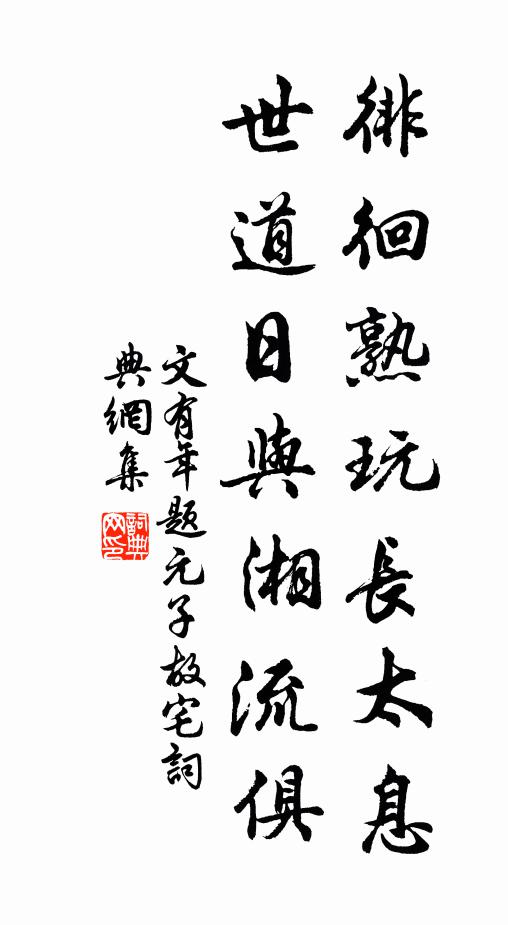 徘徊熟玩長太息
世道日與湘流俱
文有年題元子故宅詞
典網集
詞典網印